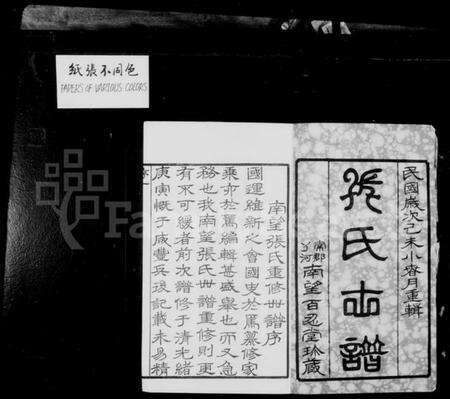 紙張不同色
PAPERS OF VARIOUS COLORS
民國歲次己未小春月重輯
張氏世譜
南望百忍堂珍藏
南望張氏重修世譜序
國運維新之會國史於焉纂修家
乘亦於焉編輯甚盛舉也而又急
務也我南望張氏世譜重修則更
有不可緩者前次譜修于清光緒
庚寅慨于咸豐兵後記載未易精